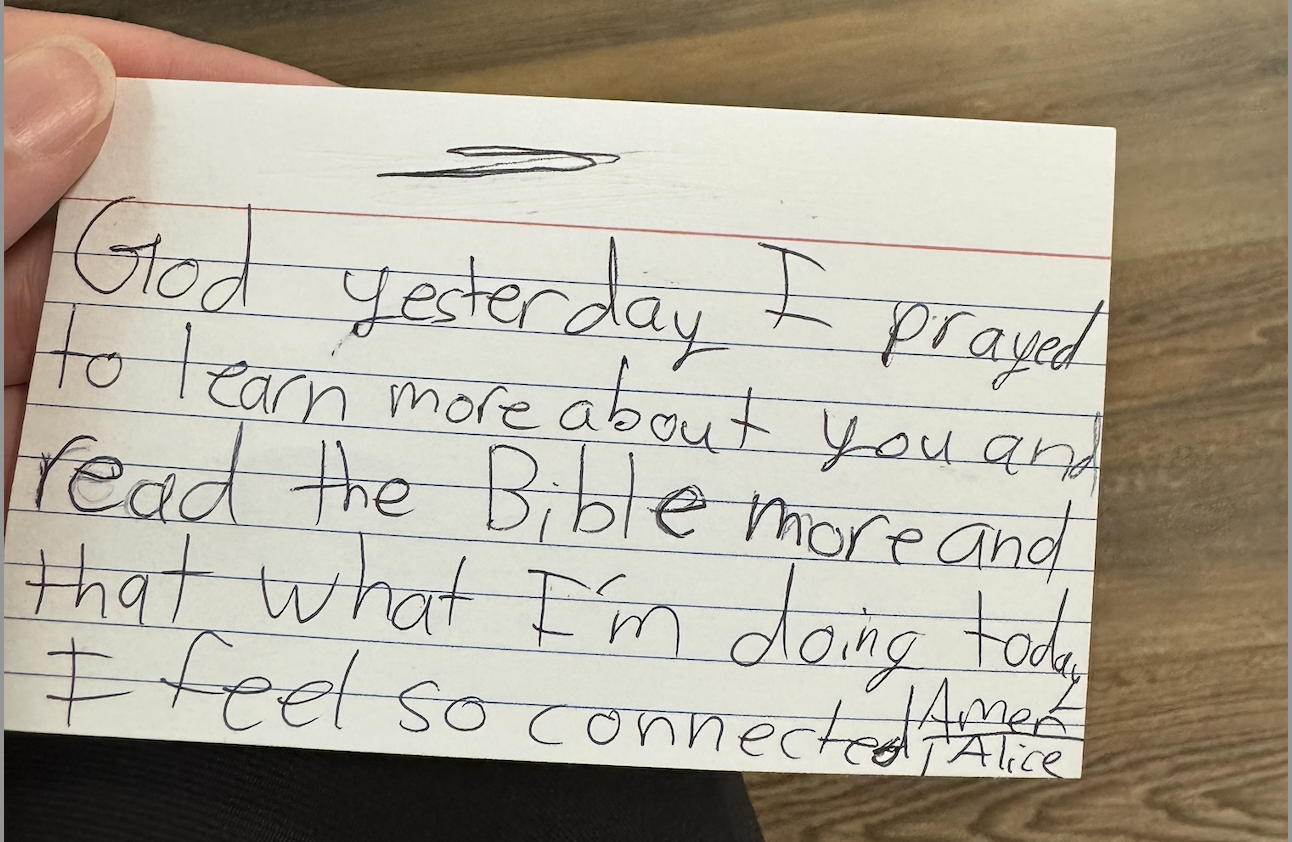 God yesterday I prayed
to learn more about you and
read the Bible more and
that what I'm doing today
I feel so connected
Amen
Alice